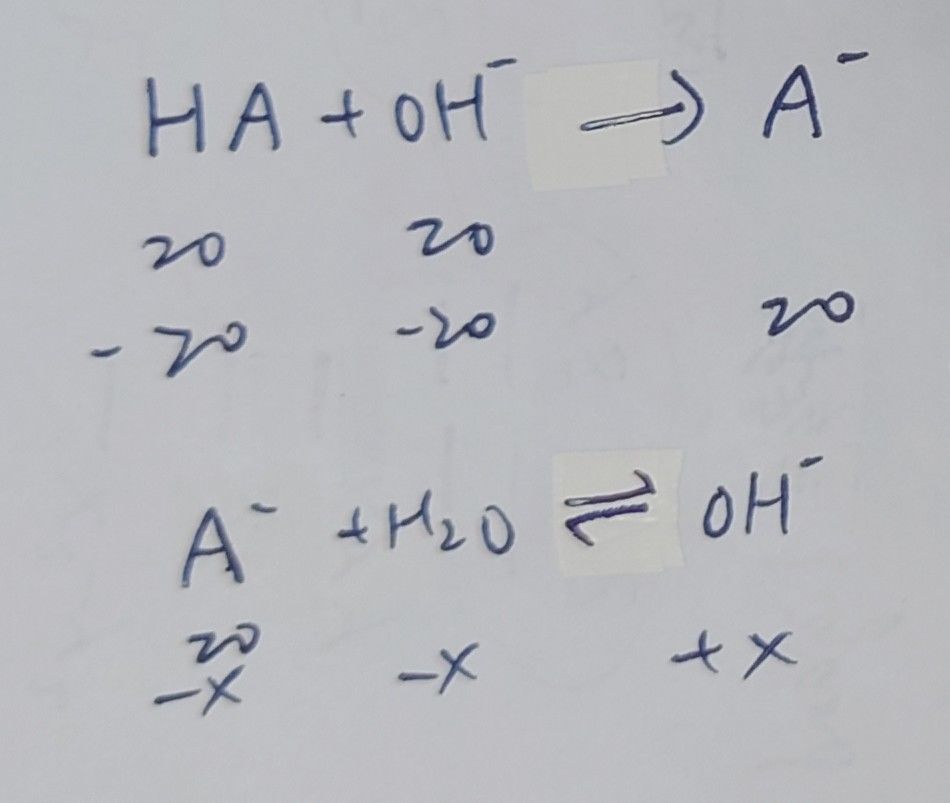 HA + OH⁻ → A⁻
20 20
-20 -20 20
A⁻ + H₂O ⇌ OH⁻
20
-x -x +x